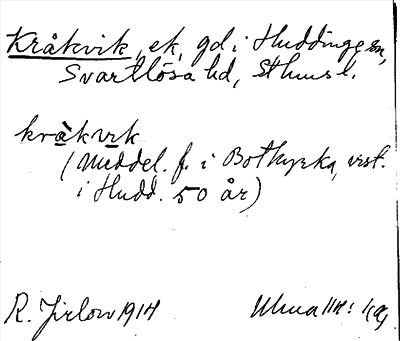 Kråkvik, ek, gd i Huddinge sn,
Svartlösa hd, Sthms l.
kråkvik
(Meddel. f. i Botkyrka, vist.
i Hudd. 50 år)
R. Jirlow 1914